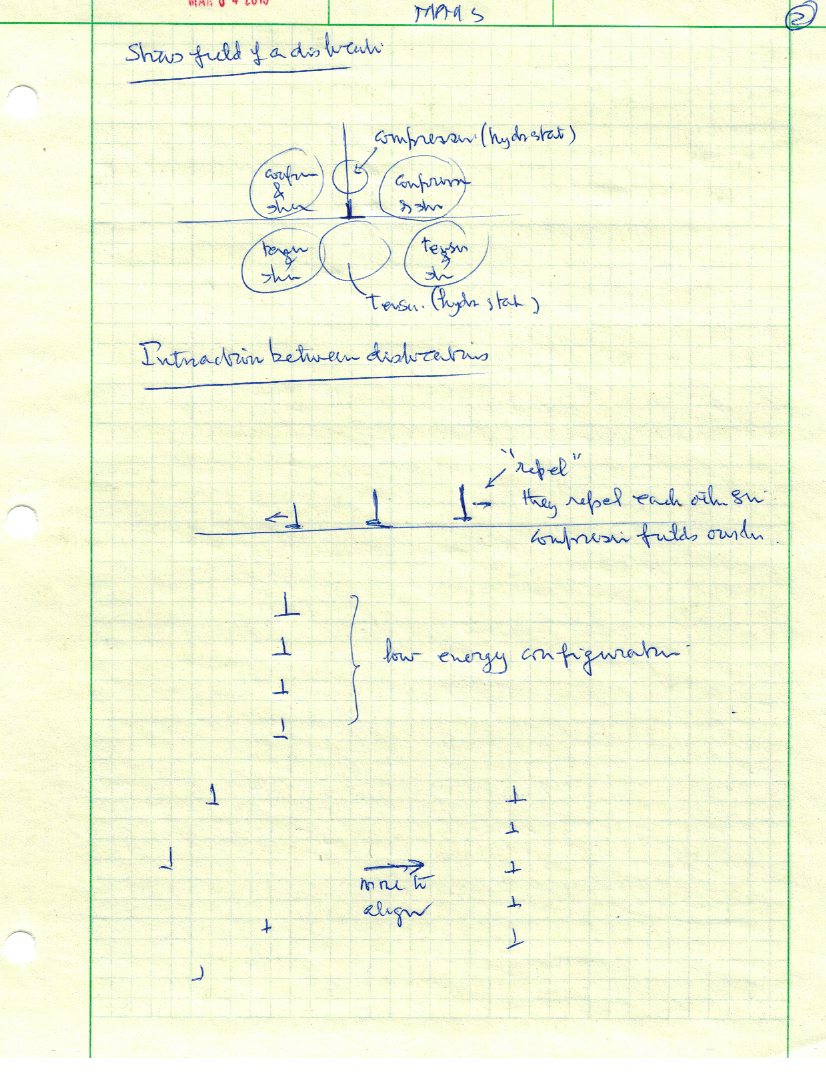 MAR 0 4 2010
MAMS
2
Stress field of a dislocati
compression (hydrostat)
compr & shea
compressi & shr
tensin & shr
tensin & sh
Tensn. (hydrostat)
Intraction between dislocations
"repel"
they repel each oth sin
compressi fields ovrlp
low energy configuration
move to
align